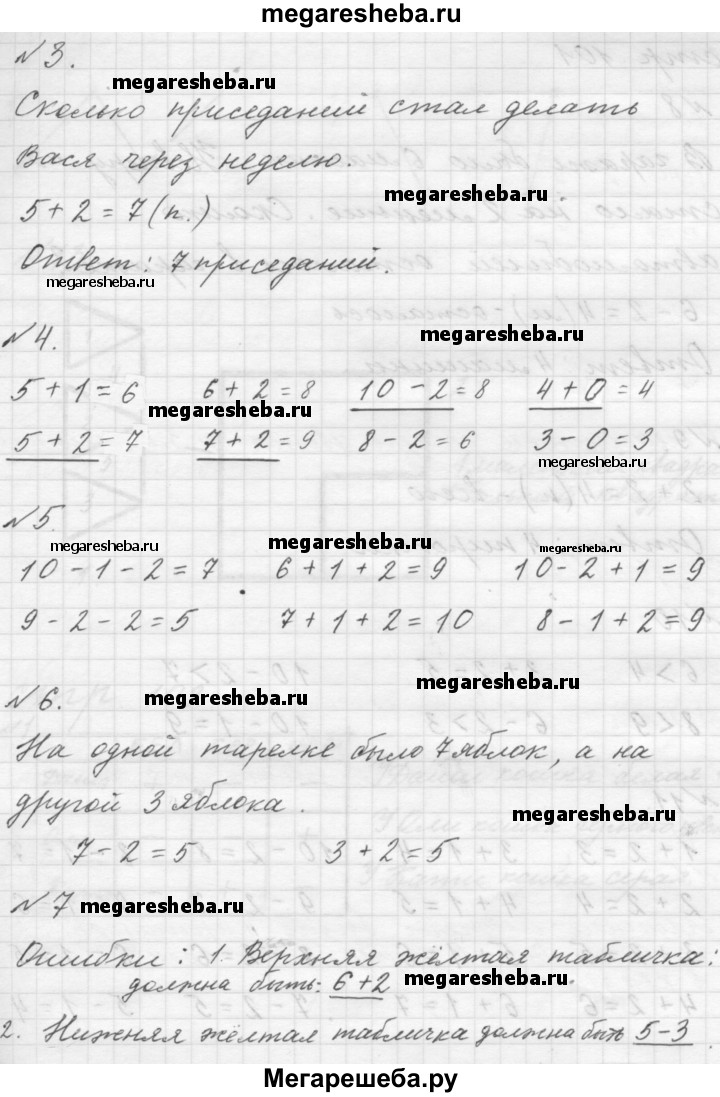 megaresheba.ru
№ 3.
megaresheba.ru
Сколько приседаний стал делать
Вася через неделю.
megaresheba.ru
5 + 2 = 7 (п.)
Ответ: 7 приседаний.
megaresheba.ru
megaresheba.ru
№ 4.
5 + 1 = 6 6 + 2 = 8 10 - 2 = 8 4 + 0 = 4
megaresheba.ru
5 + 2 = 7 7 + 2 = 9 8 - 2 = 6 3 - 0 = 3
megaresheba.ru
№ 5.
megaresheba.ru megaresheba.ru megaresheba.ru
10 - 1 - 2 = 7 6 + 1 + 2 = 9 10 - 2 + 1 = 9
9 - 2 - 2 = 5 7 + 1 + 2 = 10 8 - 1 + 2 = 9
megaresheba.ru
№ 6. megaresheba.ru
На одной тарелке было 7 яблок, а на
другой 3 яблока.
megaresheba.ru
7 - 2 = 5 3 + 2 = 5
№ 7 megaresheba.ru
Ошибки: 1. Верхняя жёлтая табличка:
должна быть: 6 + 2 megaresheba.ru
2. Нижняя жёлтая табличка должна быть 5 - 3
Мегарешеба.ру